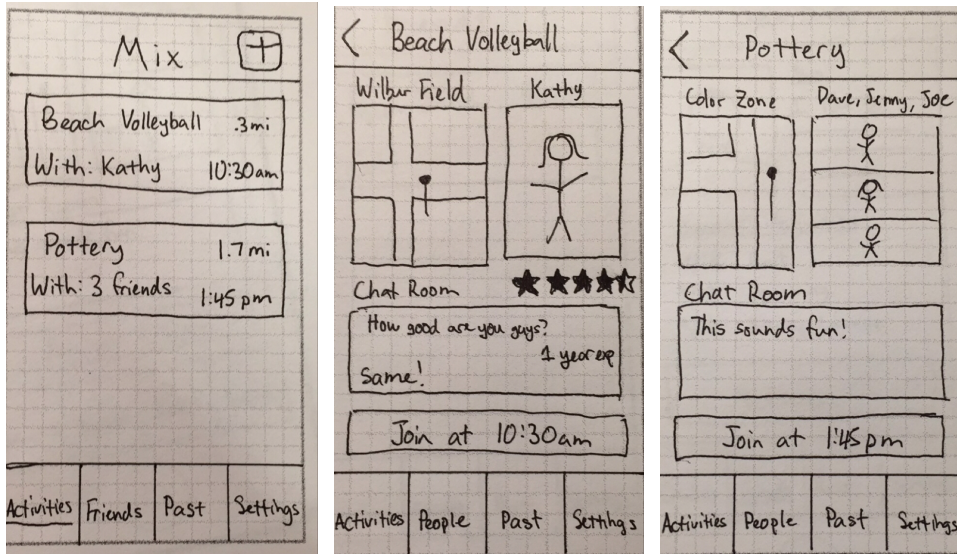 Mix +
Beach Volleyball .3mi
With: Kathy 10:30am
Pottery 1.7mi
With: 3 friends 1:45pm
Activities Friends Past Settings
< Beach Volleyball
Wilbur Field Kathy
Chat Room
How good are you guys?
1 year exp
Same!
Join at 10:30am
Activities People Past Settings
< Pottery
Color Zone Dave, Jenny, Joe
Chat Room
This sounds fun!
Join at 1:45pm
Activities People Past Settings